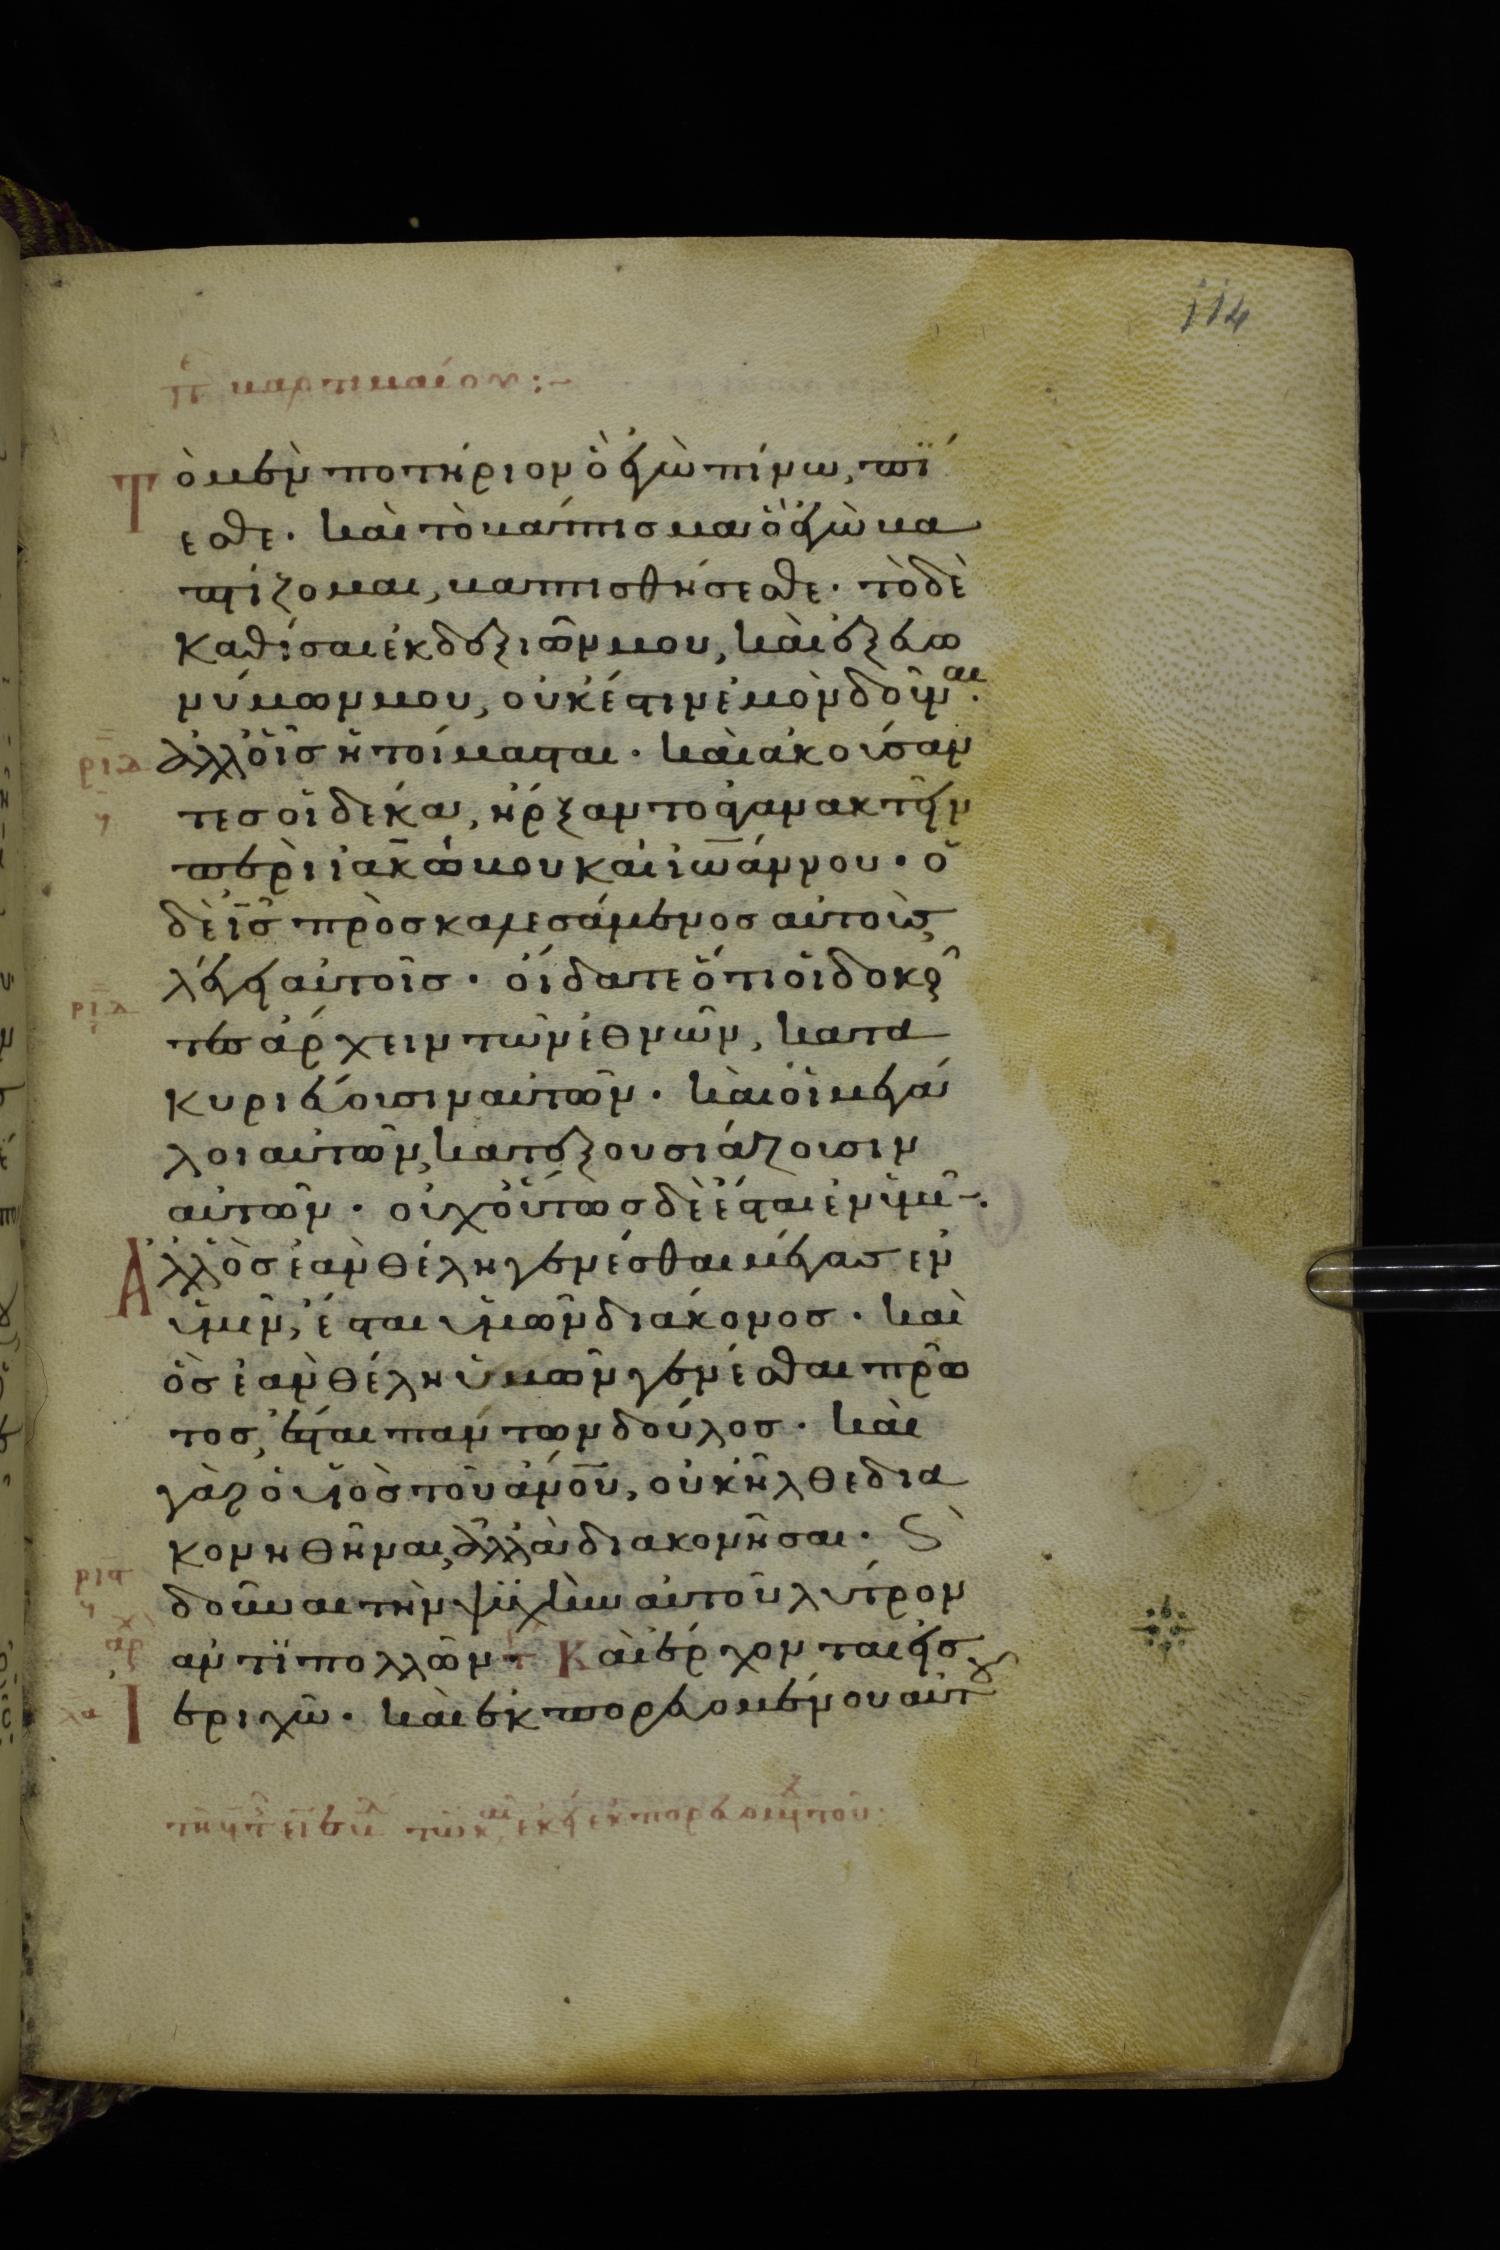 114
π̣ε̣ βαρτιμαίου :-
Τὸ μὲν ποτήριον ὃ ἐγὼ πίνω, πί
εσθε· καὶ τὸ βάπτισμα ὃ ἐγὼ βα
πτίζομαι, βαπτισθήσεσθε· τὸ δὲ
καθίσαι ἐκ δεξιῶν μου, καὶ ἐξ εὐω
νύμων μου, οὐκ έστιν ἐμὸν δοῦναι·
ἀλλ' οἷς ἡτοίμασται· καὶ ἀκούσαν
τες οἱ δέκα, ἤρξαντο ἀγανακτεῖν
περὶ ἰακώβου καὶ ἰωάννου· ὁ
δὲ ι̅ς̅ προσκαλεσάμενος αὐτοὺς
λέγει αὐτοῖς· οἴδατε ὅτι οἱ δοκοῦν
τες ἄρχειν τῶν ἐθνῶν, κατα
κυριεύουσιν αὐτῶν· καὶ οἱ μεγά
λοι αὐτῶν, κατεξουσιάζουσιν
αὐτῶν· οὐχ οὕτως δὲ ἔσται ἐν ὑμῖν·
Ἀλλ' ὃς ἐὰν θέλη γενέσθαι μέγας ἐν
ὑμῖν, ἔσται ὑμῶν διάκονος· καὶ
ὃς ἐὰν θέλη ὑμῶν γενέσθαι πρῶ
τος, ἔσται πάντων δοῦλος· καὶ
γὰρ ὁ υἱὸς τοῦ α̅ν̅ο̅υ̅, οὐκ ἦλθε δια
κονηθῆναι, ἀλλὰ διακονῆσαι· ϛ̀
δοῦναι τὴν ψυχὴν αὐτοῦ λύτρον
ἀντὶ πολλῶν· Καὶ ἔρχονται εἰς
Ἱεριχῶ· καὶ ἐκπορευομένου αὐτοῦ